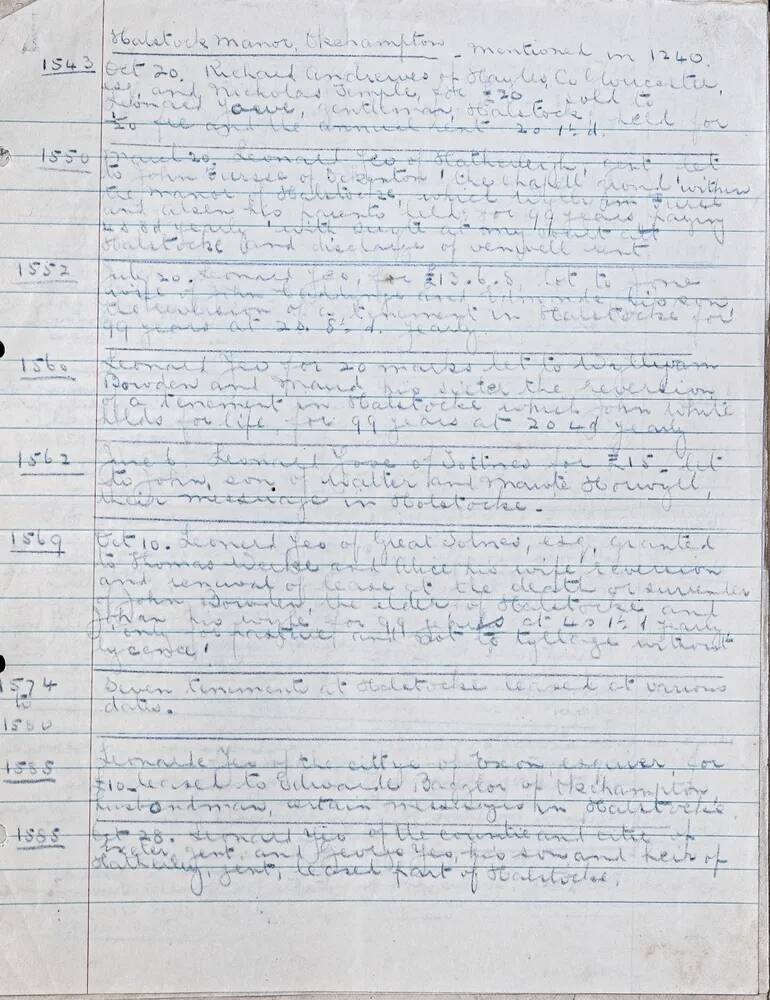 Halstock Manor, Okehampton - mentioned in 1240.
1543 Oct 20. Richard Andrewes of Hayles, Co Gloucester,
esq, and Nicholas Temple, for £20 sold to
Leonard Yowe, gentleman, Halstock, held for
1/20 fee and the annual rent 20 1½d.
1550 20. Leonard Yeo of Hatherleigh, gent let
to John of 'the chapell grond' within
the manor of Halstocke, which
and his parents held, for 99 years paying
yearly with at my
Halstocke and discharge of rent
1552 July 20. Leonard Yeo, for £13.6.8, let to Jone
wife of and his son
the reversion of a tenement in Halstocke for
99 years at 20. 8½d. yearly
1560 Leonard Yeo for 20 marks let to Wyllyam
Bowden and Maud his sister the reversion
of a tenement in Halstocke which John White
holds for life, for 99 years at 20 4d yearly
1562 6 Leonard of Tottnes for £15 let
to John, son of Walter and
their messuage in Halstocke.
1569 Oct 10. Leonard Yeo of Great Totnes, esq, granted
to Thomas and Alice his wife reversion
and renewal of lease at the death or surrender
of John Bowden, the elder of Halstocke and
his wife for 99 years at yearly
'only for pasture, and not to tyllage without
lycence'.
1574 Seven tenement at Halstocke leased at various
to dates.
1580
1585 Leonarde Yeo of the cittye of Exon, esquier, for
£10 leased to Edwarde of Okehampton,
husbondman, certain messuages in Halstocke.
1585 Oct 28. Leonard Yeo of the countie and citee of
Exeter, gent, and George Yeo, his son and heir of
Hatherley, gent, leased part of Halstocke.